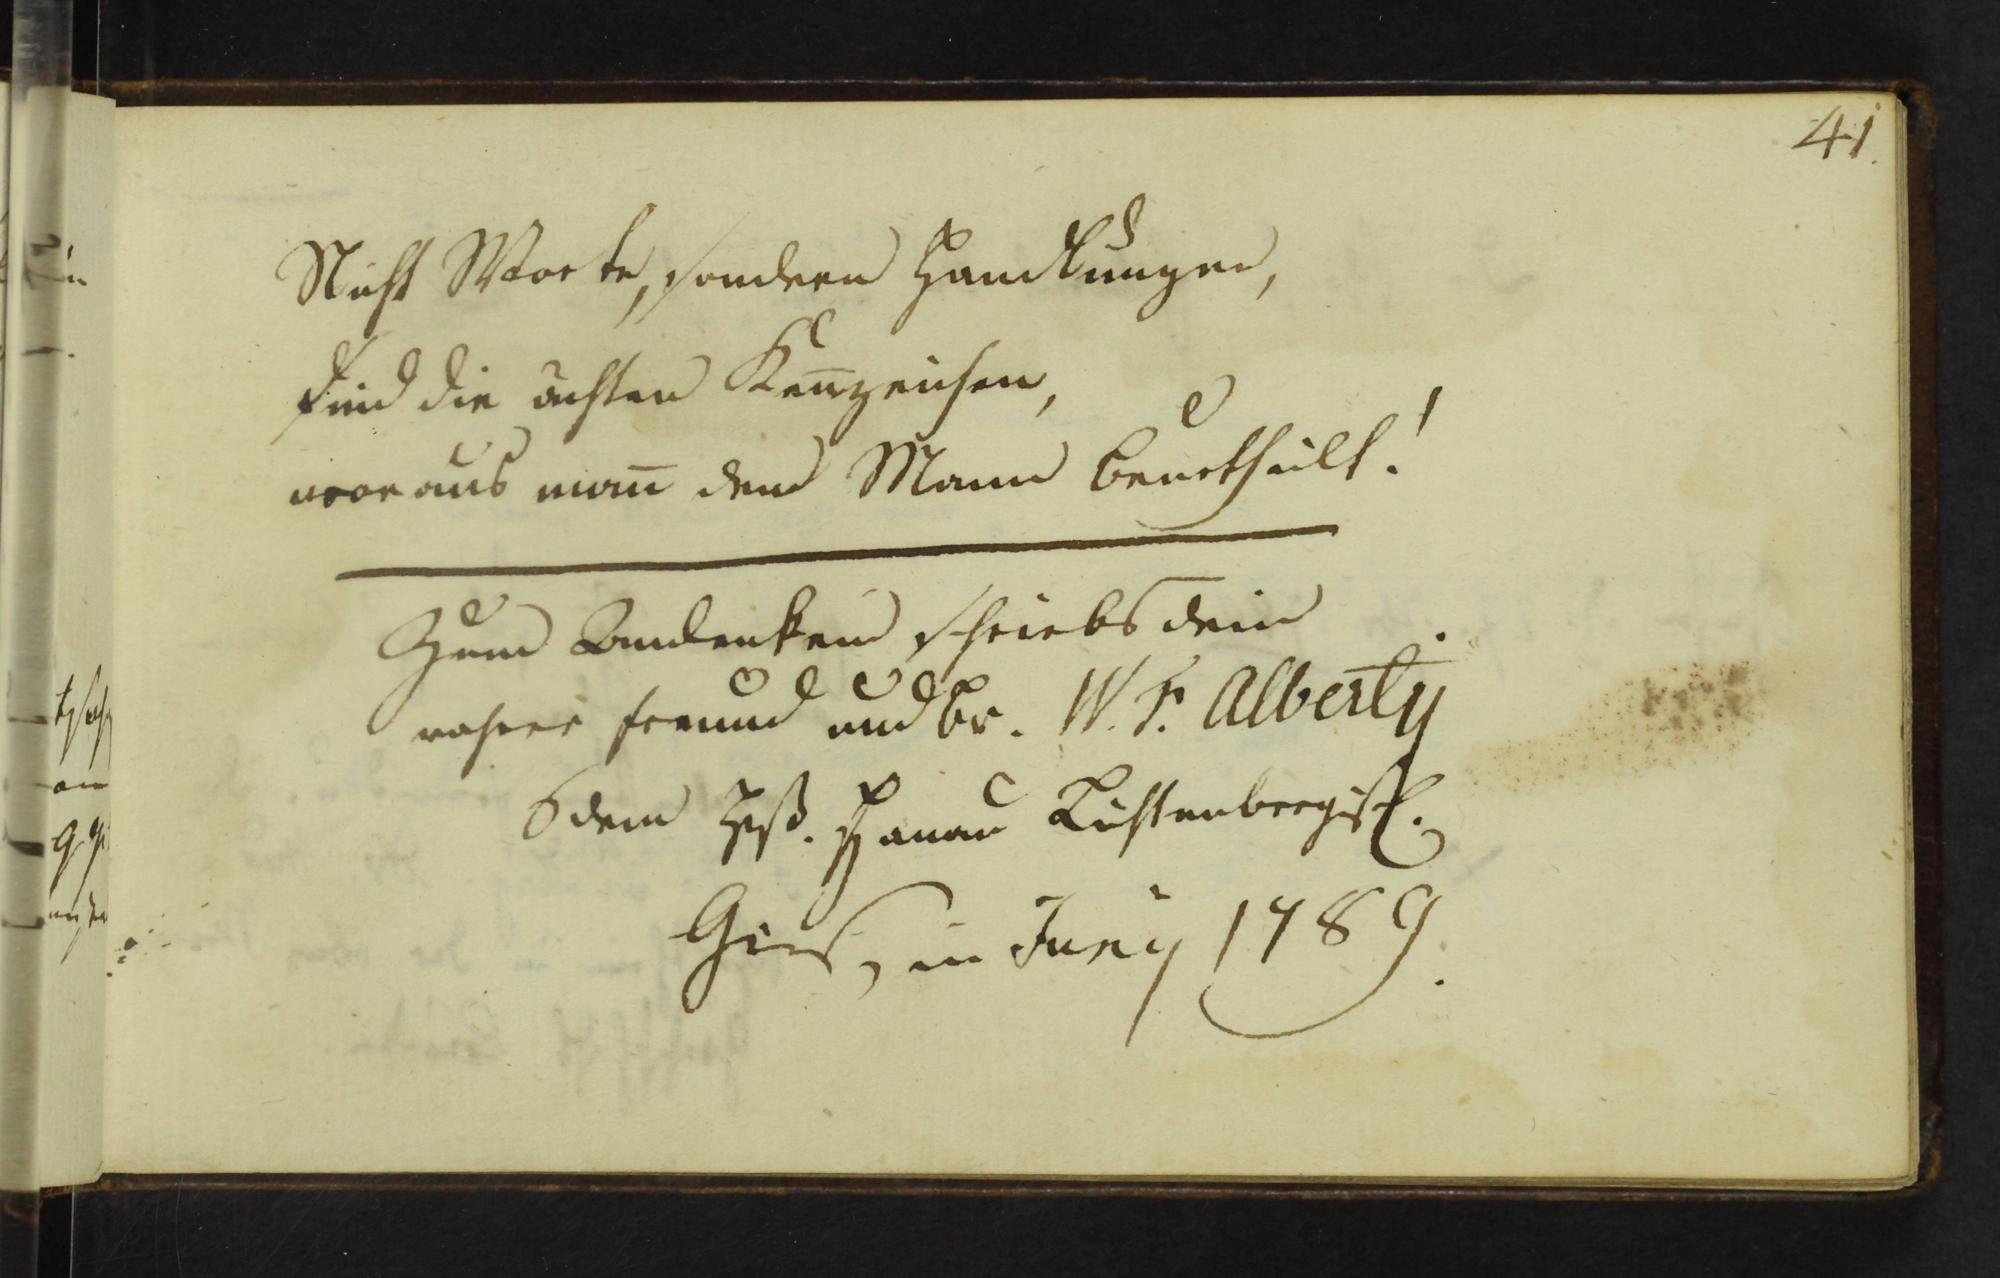 41.
Nicht Worte, sondern Handlungen,
sind die ächten Keñzeichen,
woraus mañ den Mann beurtheilt!
Zum Andenken schriebs dein
wahrer Freund und Br. W. F. Alberty
dem Hß. Hanau Lichtenbergisch.
Gies, im Juny 1789.